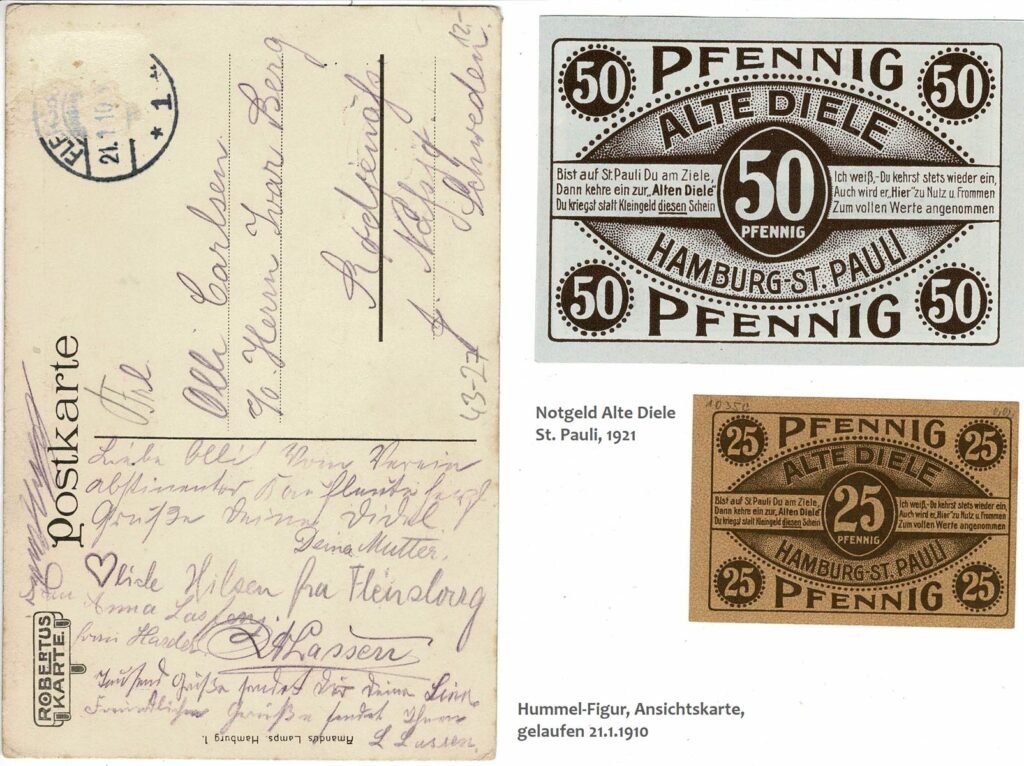 Postkarte
ELF
21.1.10
* 1 *
Frl
Olli Carlsen
Herrn Ivar Berg
Schweden
12.-
43-27
Liebe Olli Vom Verein
abstinenter
Grüße Deine
Deine Mutter.
Hilsen fra Flensborg
Anna
Lassen
Tausend Grüße sendet Dir Deine
Freundlichen Grüße sendet Ihnen
L Lassen.
ROBERTUS
KARTE.
Amandus Lamps. Hamburg 1.
50 PFENNIG 50
ALTE DIELE
Bist auf St. Pauli Du am Ziele,
Dann kehre ein zur „Alten Diele"
Du kriegst statt Kleingeld diesen Schein
50
PFENNIG
Ich weiß,-Du kehrst stets wieder ein,
Auch wird er „Hier" zu Nutz u. Frommen
Zum vollen Werte angenommen
HAMBURG-ST. PAULI
50 PFENNIG 50
Notgeld Alte Diele
St. Pauli, 1921
10350
25 PFENNIG 25
ALTE DIELE
Bist auf St Pauli Du am Ziele,
Dann kehre ein zur „Alten Diele"
Du kriegst statt Kleingeld diesen Schein
25
PFENNIG
Ich weiß,-Du kehrst stets wieder ein,
Auch wird er „Hier" zu Nutz u. Frommen
Zum vollen Werte angenommen
HAMBURG-ST. PAULI
25 PFENNIG 25
Hummel-Figur, Ansichtskarte,
gelaufen 21.1.1910